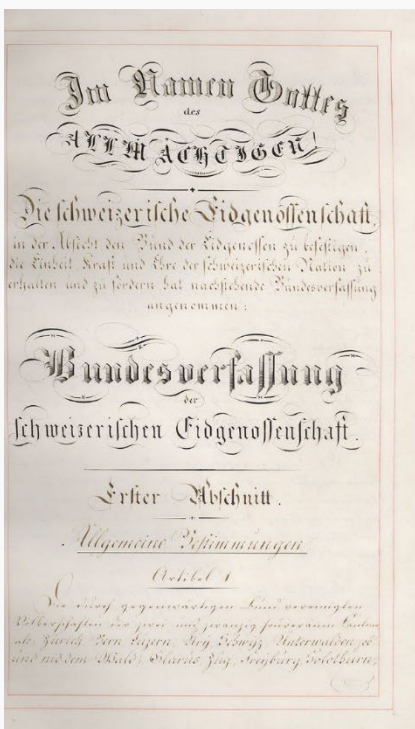 Im Namen Gottes
des
ALLMÄCHTIGEN!
Die schweizerische Eidgenossenschaft,
in der Absicht den Bund der Eidgenossen zu befestigen,
die Einheit Kraft und Ehre der schweizerischen Nation zu
erhalten und zu fördern hat nachstehende Bundesverfassung
angenommen:
Bundesverfassung
der
schweizerischen Eidgenossenschaft.
Erster Abschnitt.
Allgemeine Bestimmungen
Artikel 1
Die durch gegenwärtigen Bund vereinigten
Völkerschaften der zwei und zwanzig souveränen Kantone
als: Zürich, Bern, Luzern, Ury, Schwyz, Unterwalden, ob
und nid dem Wald, Glarus, Zug, Freyburg, Solothurn,